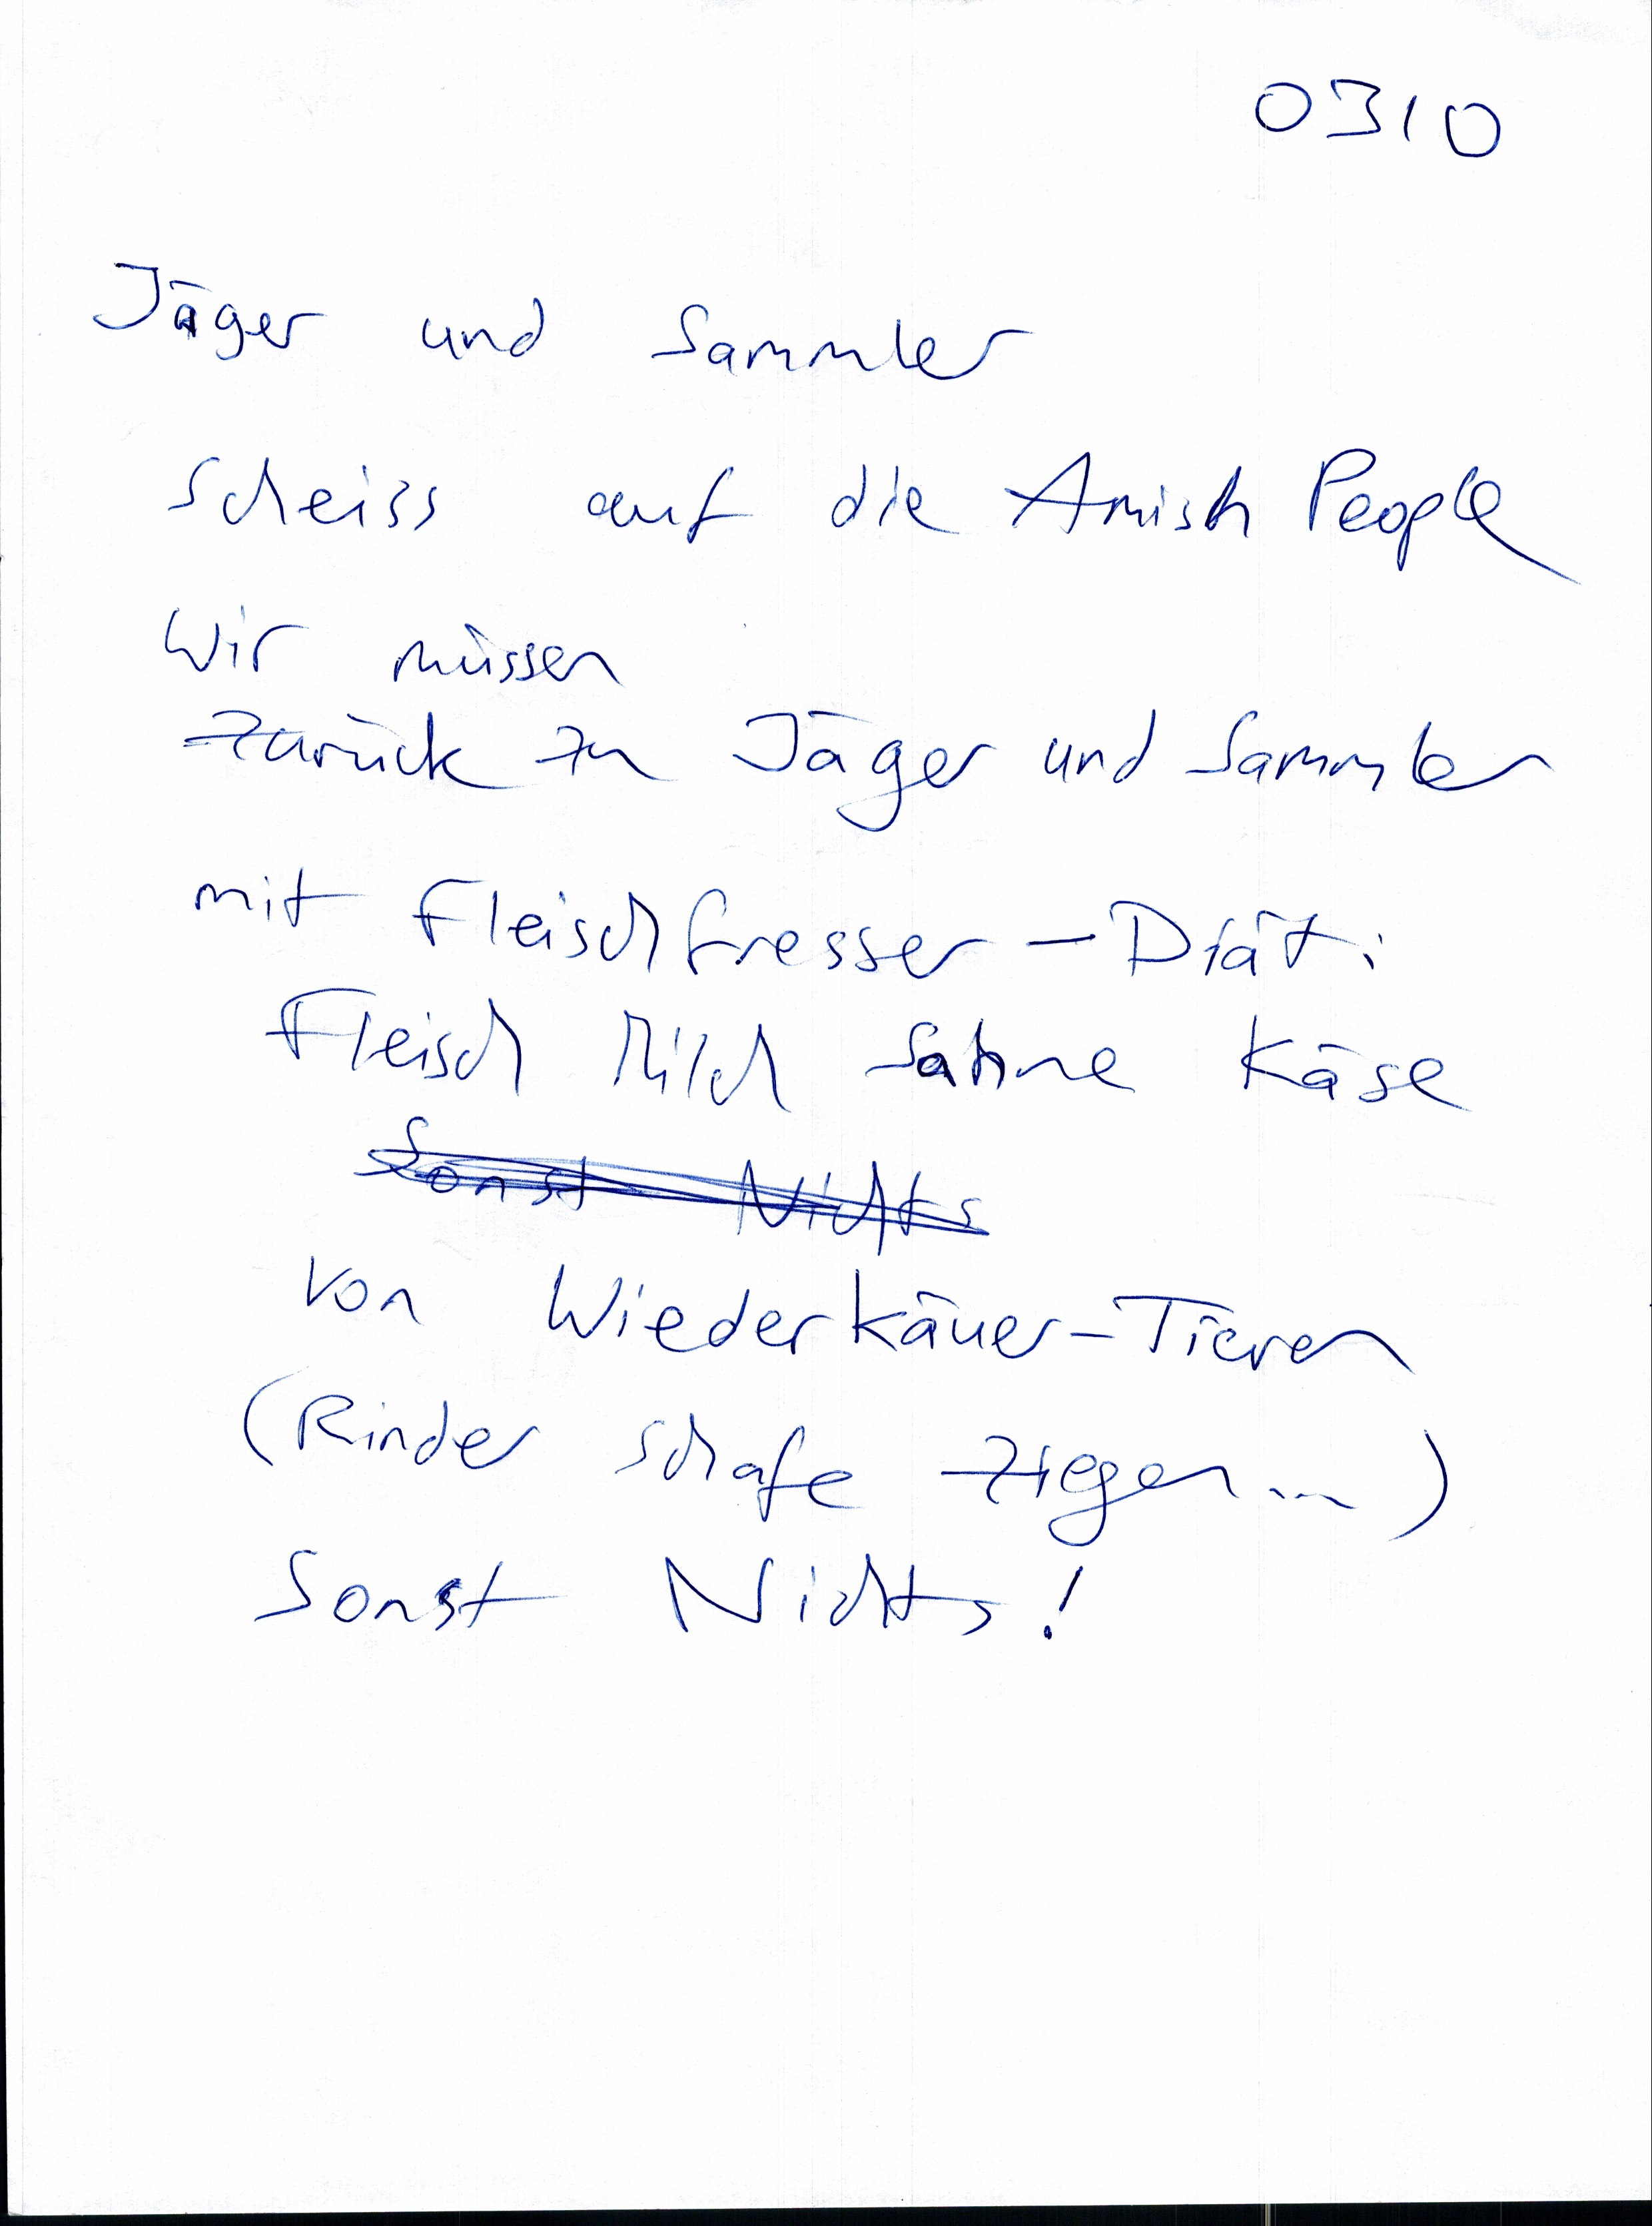 0310
Jäger und Sammler
Scheiss auf die Amish People
Wir müssen
zurück zu Jäger und Sammler
mit Fleischfresser-Diät:
Fleisch Milch Sahne Käse
Sonst Nichts
von Wiederkäuer-Tieren
(Rinder Schafe Ziegen...)
Sonst Nichts!